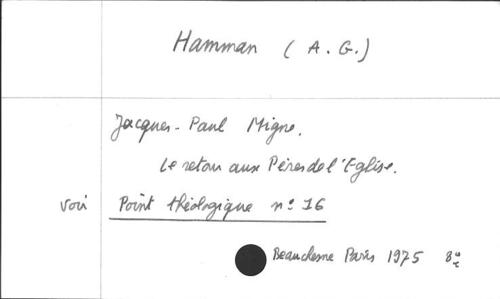 Hamman (A. G.)
Jacques-Paul Migne.
Le retour aux Pères de l'Eglise.
voir Point théologique n° 16
Beauchesne Paris 1975 8°